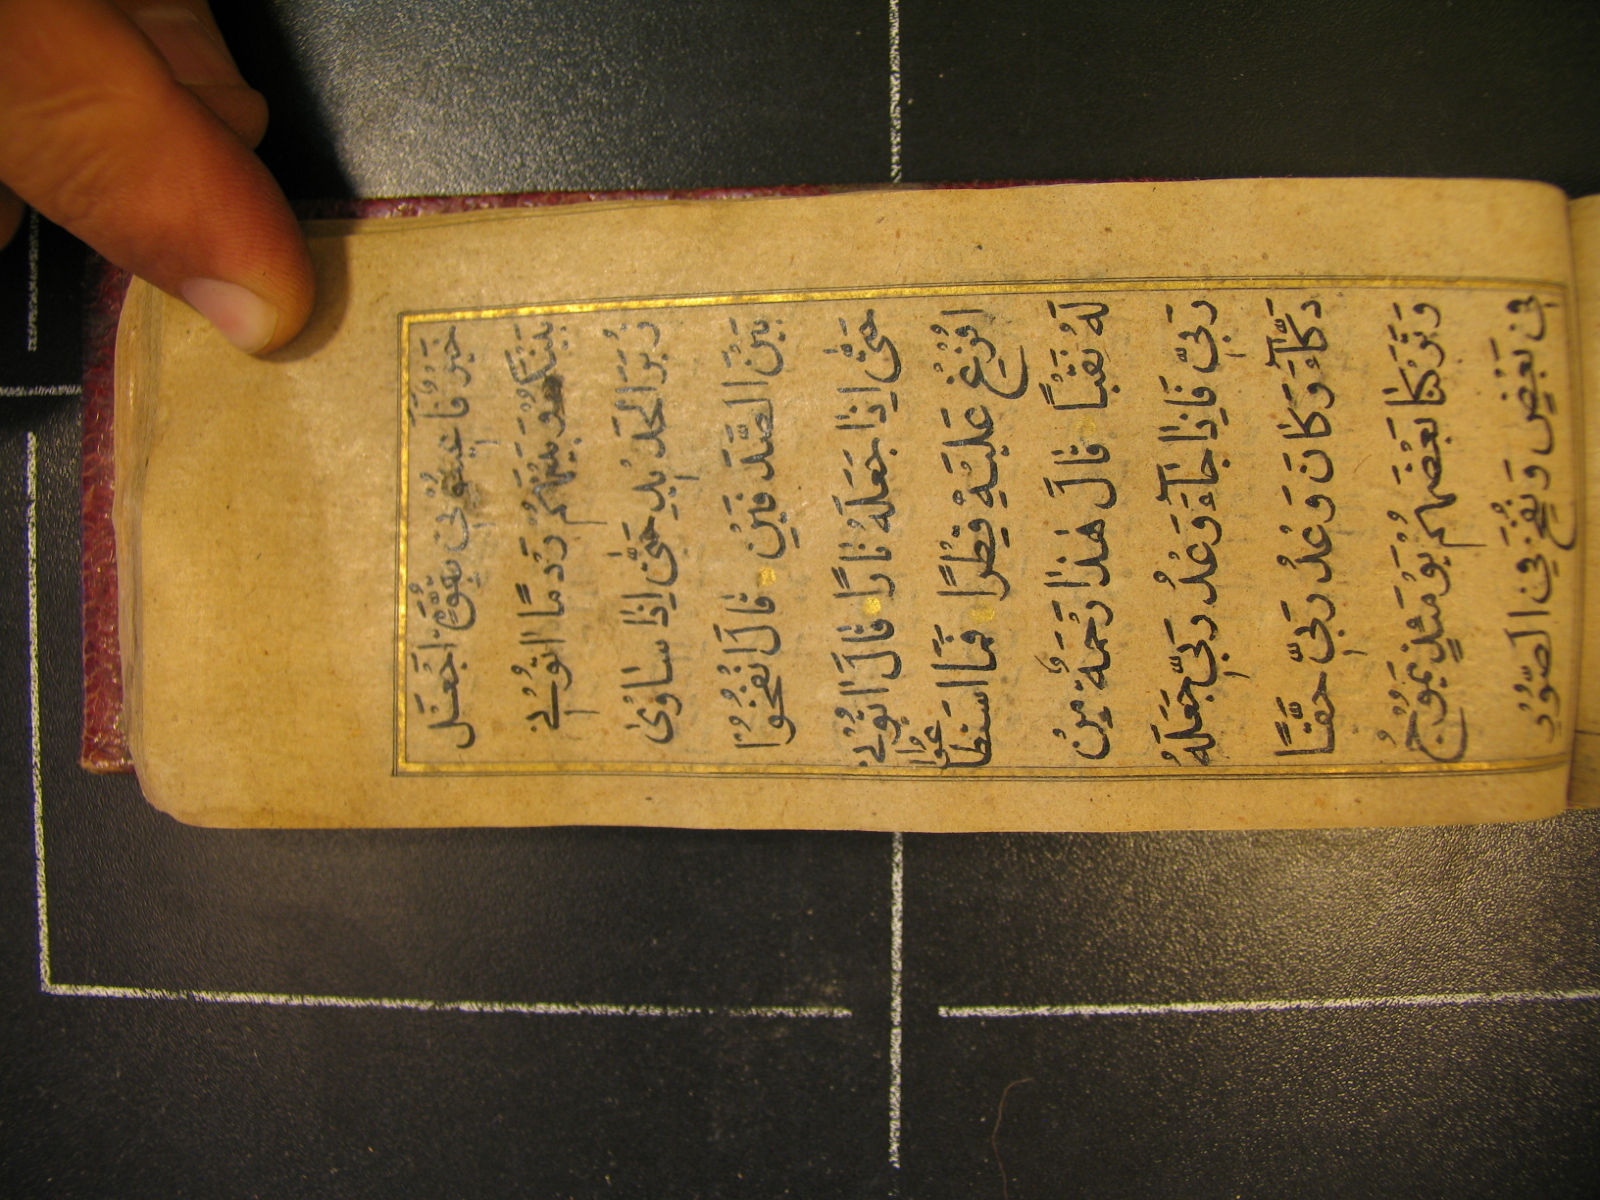 خَيْرٌ فَاَعِينُونِي بِقُوَّةٍ اَجْعَلْ
بَيْنَكُمْ وَبَيْنَهُمْ رَدْمًا اٰتُونِي
زُبَرَ الْحَدِيدِ حَتّٰى اِذَا سَاوٰى
بَيْنَ الصَّدَفَيْنِ قَالَ انْفُخُوا
حَتّٰى اِذَا جَعَلَهُ نَارًا قَالَ اٰتُونِي
اُفْرِغْ عَلَيْهِ قِطْرًا فَمَا اسْتَطَاعُوا
لَهُ نَقْبًا قَالَ هٰذَا رَحْمَةٌ مِنْ
رَبِّي فَاِذَا جَآءَ وَعْدُ رَبِّي جَعَلَهُ
دَكَّآءَ وَكَانَ وَعْدُ رَبِّي حَقًّا
وَتَرَكْنَا بَعْضَهُمْ يَوْمَئِذٍ يَمُوجُ
فِي بَعْضٍ وَنُفِخَ فِي الصُّورِ